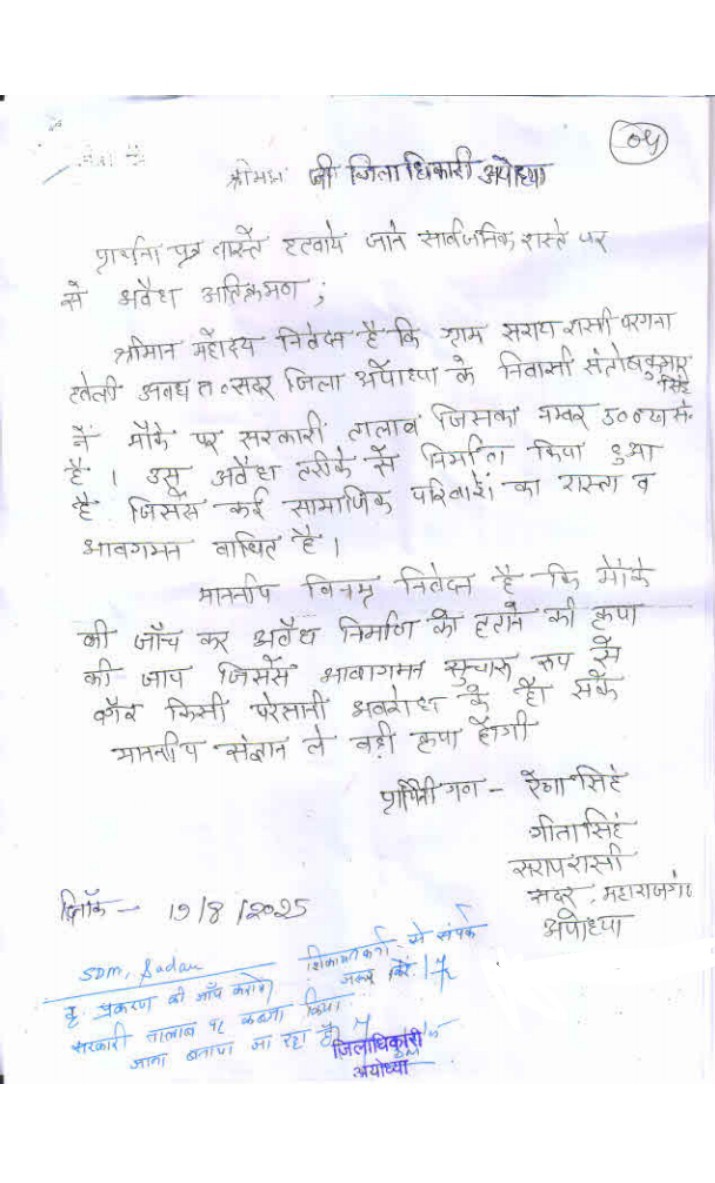 04
श्रीमान जी जिलाधिकारी अयोध्या
प्रार्थना पत्र वास्ते हटवाये जाने सार्वजनिक रास्ते पर
से अवैध अतिक्रमण ;
श्रीमान महोदय निवेदन है कि ग्राम सराय रासी परगना
हवेली अवध त०सदर जिला अयोध्या के निवासी संतोषकुमार
सिंह
नें मौके पर सरकारी तालाब जिसका नम्बर
है । उसे अवैध तरीके से निर्माण किया हुआ
है जिससे कई सामाजिक परिवारों का रास्ता व
आवगमन बाधित है ।
माननीय विनम्र निवेदन है कि मौके
की जाँच कर अवैध निर्माण को हटाने की कृपा
की जाय जिससे आवागमन सुचारू रूप से
बगैर किसी परेसानी अवरोध के हो सके
माननीय संज्ञान ले बड़ी कृपा होगी
प्रार्थिनी गण - सिंह
गीता सिंह
सरायरासी
सदर, महाराजगंज
अयोध्या
दिनाँक - 19/8/2025
SDM, Sadar
शिकायतकर्ता से संपर्क
जरूर करें।
कृ. प्रकरण की जाँच करायें
सरकारी तालाब पर कब्जा किया
जाना बताया जा रहा है।
जिलाधिकारी
अयोध्या